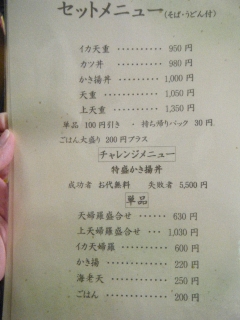 セットメニュー(そば・うどん付)
イカ天重 ・・・・・・・・・・ 950 円
カツ丼 ・・・・・・・・・・ 980 円
かき揚丼 ・・・・・・・・・・ 1,000 円
天重 ・・・・・・・・・・ 1,050 円
上天重 ・・・・・・・・・・ 1,350 円
単品 100円引き ・ 持ち帰りパック 30円
ごはん大盛り 200円プラス
チャレンジメニュー
特盛かき揚丼
成功者 お代無料 失敗者 5,500 円
単品
天婦羅盛合せ ・・・・・・ 630 円
上天婦羅盛合せ ・・・・・ 1,030 円
イカ天婦羅 ・・・・・・・ 600 円
かき揚 ・・・・・・・・ 220 円
海老天 ・・・・・・・・ 250 円
ごはん ・・・・・・・・ 200 円